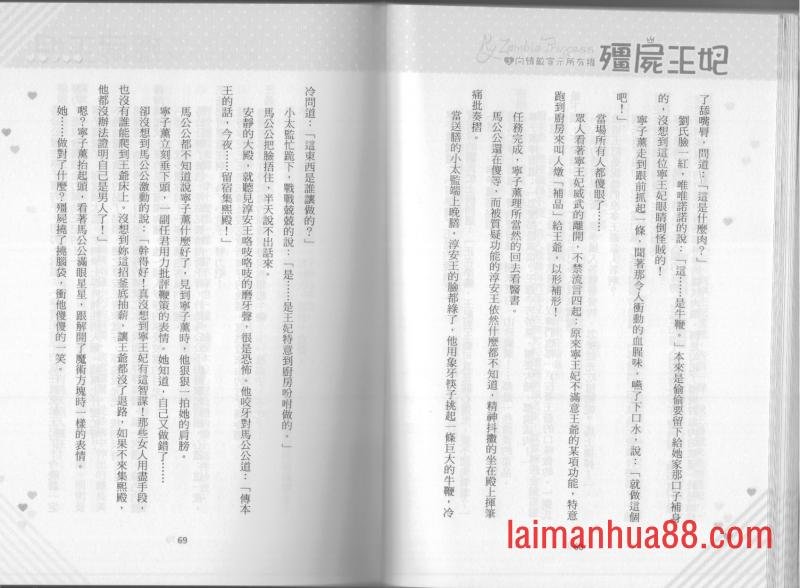 My Zombie Princess
殭屍王妃
3向情敵宣示所有權
了舔嘴唇，問道：「這是什麼肉？」
劉氏臉一紅，唯唯諾諾的說：「這……是牛鞭。」本來是偷偷要留下給她家那口子補身
的，沒想到這位寧王妃眼睛倒怪賊的！
寧子薰走到跟前抓起一條，聞著那令人衝動的血腥味，嚥了下口水，說：「就做這個
吧！」
當場所有人都傻眼了……
眾人看著寧王妃威武的離開，不禁流言四起：原來寧王妃不滿意王爺的某項功能，特意
跑到廚房來叫人燉「補品」給王爺，以形補形！
任務完成，寧子薰理所當然的回去看醫書。
馬公公還在傻等，而被質疑功能的淳安王依然什麼都不知道，精神抖擻的坐在殿上揮筆
痛批奏摺。
當送膳的小太監端上晚膳，淳安王的臉都綠了，他用象牙筷子挑起一條巨大的牛鞭，冷
laimanhua88.com
冷問道：「這東西是誰讓做的？」
小太監忙跪下，戰戰兢兢的說：「是……是王妃特意到廚房吩咐做的。」
馬公公把臉捂住，半天說不出話來。
安靜的大殿，就聽見淳安王咯吱咯吱的磨牙聲，很是恐怖。他咬牙對馬公公道：「傳本
王的話，今夜……留宿集熙殿！」
馬公公都不知道說寧子薰什麼好了，見到寧子薰時，他狠狠一拍她的肩膀。
寧子薰立刻垂下頭，一副任君用力批評鞭策的表情。她知道，自己又做錯了……
卻沒想到馬公公激動的說：「幹得好！真沒想到寧王妃有這智謀！那些女人用盡手段，
也沒有誰能爬到王爺床上，沒想到妳這招釜底抽薪，讓王爺都沒了退路，如果不來集熙殿，
他都沒辦法證明自己是男人了！」
嗯？寧子薰抬起頭，看著馬公公滿眼星星，跟解開了魔術方塊時一樣的表情。
她……做對了什麼？殭屍撓了撓腦袋，衝他傻傻的一笑。
69